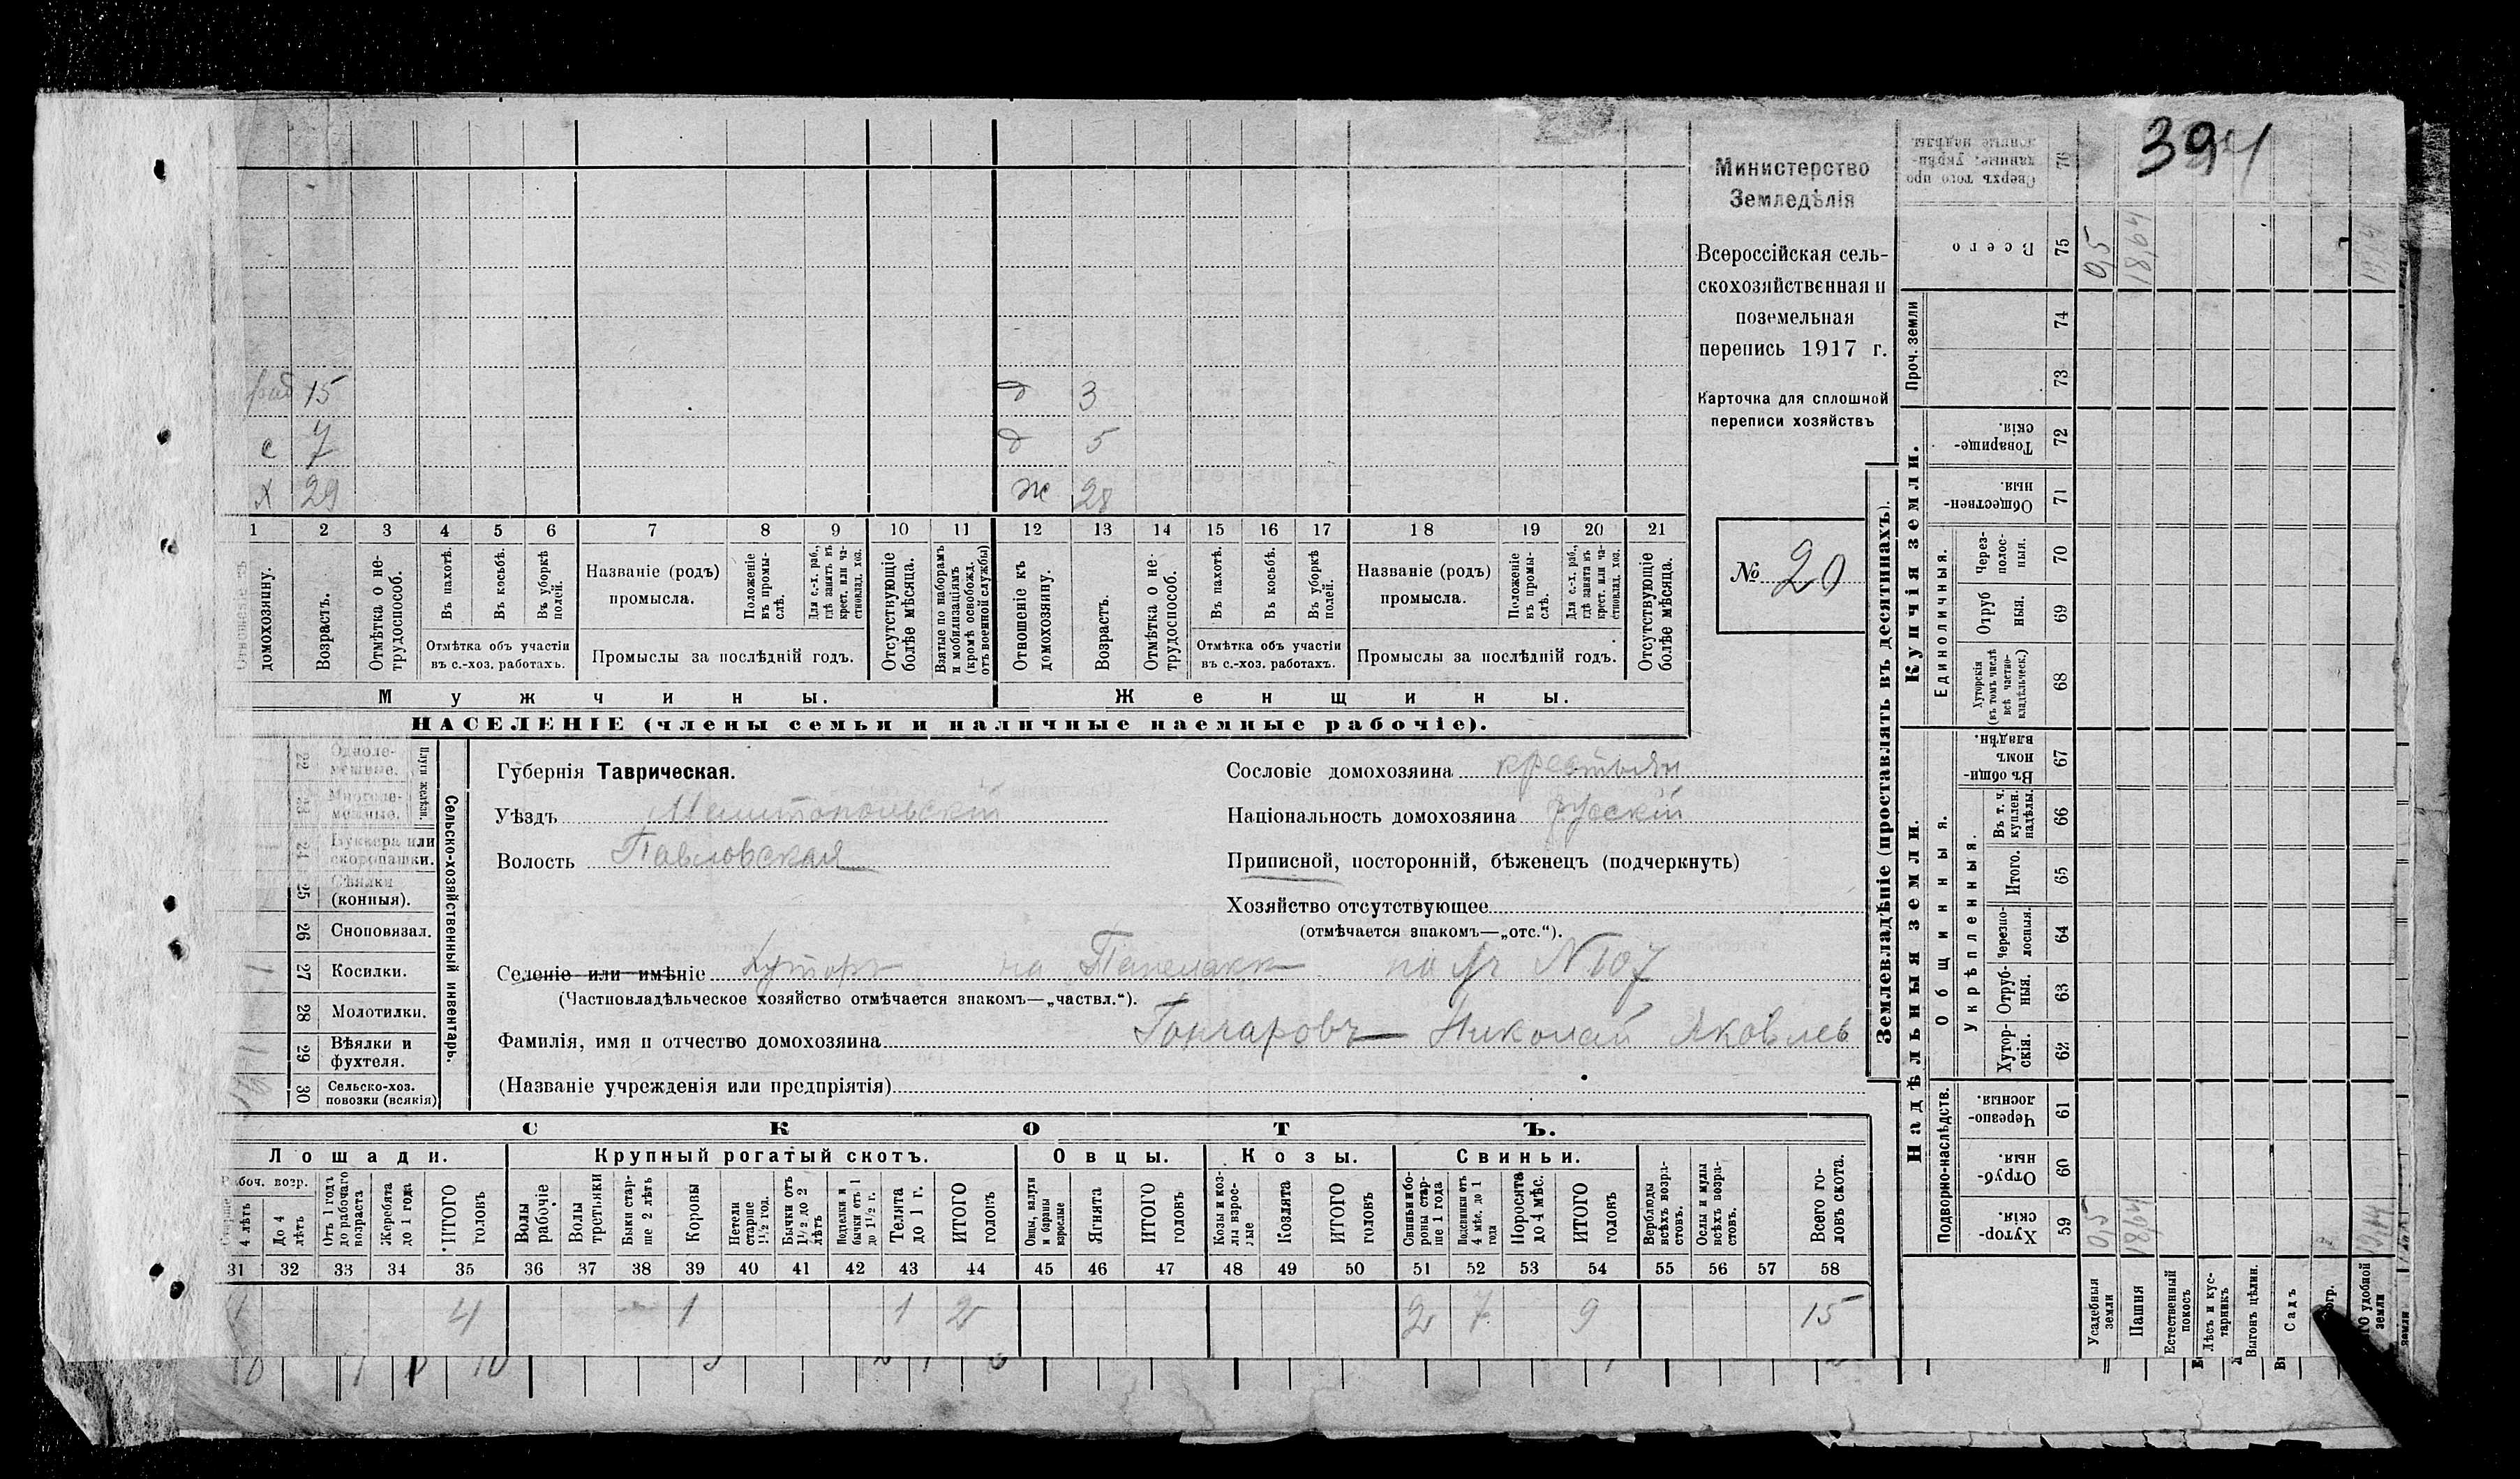 394
Министерство
Земледѣлія
Всероссійская сель-
скохозяйственная и
поземельная
перепись 1917 г.
Карточка для сплошной
переписи хозяйствъ
№ 20
раб 15
д 3
с 7
д 5
х 29
ж 28
1 2 3 4 5 6 7 8 9 10 11 12 13 14 15 16 17 18 19 20 21
домохозяину.
Возрастъ.
Отмѣтка о не-
трудоспособ.
Въ пахотѣ.
Въ косьбѣ.
Въ уборкѣ
полей.
Отмѣтка объ участіи
въ с.-хоз. работахъ.
Названіе (родъ)
промысла.
Положеніе
въ промы-
слѣ.
Для с.-х. раб.,
гдѣ занятъ въ
крест. или ча-
стновлад. хоз.
Промыслы за послѣдній годъ.
Отсутствующіе
болѣе мѣсяца.
Взятые по наборамъ
и мобилизаціямъ
(кромѣ освобожд.
отъ военной службы)
Отношеніе къ
домохозяину.
Возрастъ.
Отмѣтка о не-
трудоспособ.
Въ пахотѣ.
Въ косьбѣ.
Въ уборкѣ
полей.
Отмѣтка объ участіи
въ с.-хоз. работахъ.
Названіе (родъ)
промысла.
Положеніе
въ промы-
слѣ.
Для с.-х. раб.,
гдѣ занята въ
крест. или ча-
стновлад. хоз.
Промыслы за послѣдній годъ.
Отсутствующіе
болѣе мѣсяца.
Мужчины.
Женщины.
НАСЕЛЕНІЕ (члены семьи и наличные наемные рабочіе).
Губернія Таврическая.
Уѣздъ Мелитопольскій
Волость Павловская
Сословіе домохозяина крестьян
Національность домохозяина русскій
Приписной, посторонній, бѣженецъ (подчеркнуть)
Хозяйство отсутствующее
(отмѣчается знакомъ—„отс.“).
Селеніе или имѣніе Хуторъ на № 107
(Частновладѣльческое хозяйство отмѣчается знакомъ—„частвл.“).
Фамилія, имя и отчество домохозяина Гончаровъ Николай Яковлев
(Названіе учрежденія или предпріятія)
Сельско-хозяйственный инвентарь.
Плуги желѣзн.
22 Одноле-
мешные.
23 Многоле-
мешные.
24 Буккера или
скоропашки.
25 Сѣялки
(конныя).
26 Сноповязал.
27 Косилки. 1
28 Молотилки.
29 Вѣялки и
фухтеля. 1
30 Сельско-хоз.
повозки (всякія)
СКОТЪ.
Лошади.
Крупный рогатый скотъ.
Овцы.
Козы.
Свиньи.
Рабоч. возр.
4 лѣтъ
До 4
лѣтъ
Отъ 1 годъ
до рабочаго
возраста
Жеребята
до 1 года
ИТОГО
головъ
Волы
рабочіе
Волы
третьяки
Быки стар-
ше 2 лѣтъ
Коровы
Нетели
старше
1½ год.
Бычки отъ
1½ до 2
лѣтъ
Подтелки и
бычки отъ 1
до 1½ г.
Телята
до 1 г.
ИТОГО
головъ
Овцы, валухи
и бараны
взрослые
Ягнята
ИТОГО
головъ
Козы и коз-
лы взрос-
лые
Козлята
ИТОГО
головъ
Свиньи и бо-
ровы стар-
ше 1 года
Подсвинки отъ
4 мѣс. до 1
года
Поросята
до 4 мѣс.
ИТОГО
головъ
Верблюды
всѣхъ возра-
стовъ.
Ослы и мулы
всѣхъ возра-
стовъ.
Всего го-
ловъ скота.
31 32 33 34 35 36 37 38 39 40 41 42 43 44 45 46 47 48 49 50 51 52 53 54 55 56 57 58
4 1 1 2 2 7 9 15
Землевладѣніе (проставлять въ десятинахъ).
Сверхъ того про
76
Всего
75 0,5 18,64
Проч. земли
74
73
Купчія земли.
Товарище-
скія.
72
Обществен-
ныя.
71
Единоличныя.
Через-
полос-
ныя.
70
Отруб
ныя.
69
Хуторскія
(въ томъ числѣ
всѣ частно-
владѣльческ.)
68
Надѣльныя земли.
Въ общин-
номъ
владѣн.
67
Общинныя.
Укрѣпленныя.
Въ т. ч.
куплен.
надѣлы.
66
Итого.
65
Черезпо-
лосныя.
64
Отруб-
ныя.
63
Хутор-
скія.
62
Подворно-наслѣдств.
Черезпо-
лосныя.
61
Отруб-
ныя.
60
Хутор-
скія.
59 0,5 18,64
Усадебныя
земли
Пашня
Естественный
покосъ
Лѣсъ и кус-
тарникъ
Выгонъ цѣлин.
Садъ
удобной
земли